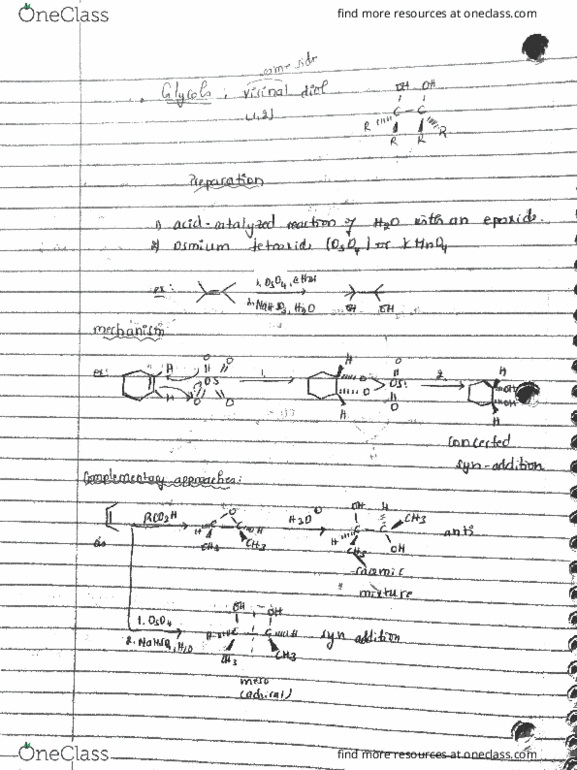 OneClass find more resources at oneclass.com
Glycols ; visinal diol
(1,2)
OH OH
C - C
R R
R R
Preparation
1) acid-catalyzed reaction of H2O with an epoxide.
2) osmium tetroxide (OsO4) or KMnO4
ex: 1. OsO4,
2. NaHSO3, H2O
OH OH
mechanism:
ex: H H O O OS O O 1. H O O OS: O O H 2. H OH OH H
concerted
syn-addition
Complementary approaches:
cis RCO3H O C C H H CH3 CH3 H3O⊕ OH H C C CH3 H CH3 OH anti
racemic
mixture
1. OsO4
2. NaHSO3, H2O
OH OH
H C C H syn addition
CH3 CH3
meso
(achiral)
OneClass find more resources at oneclass.com